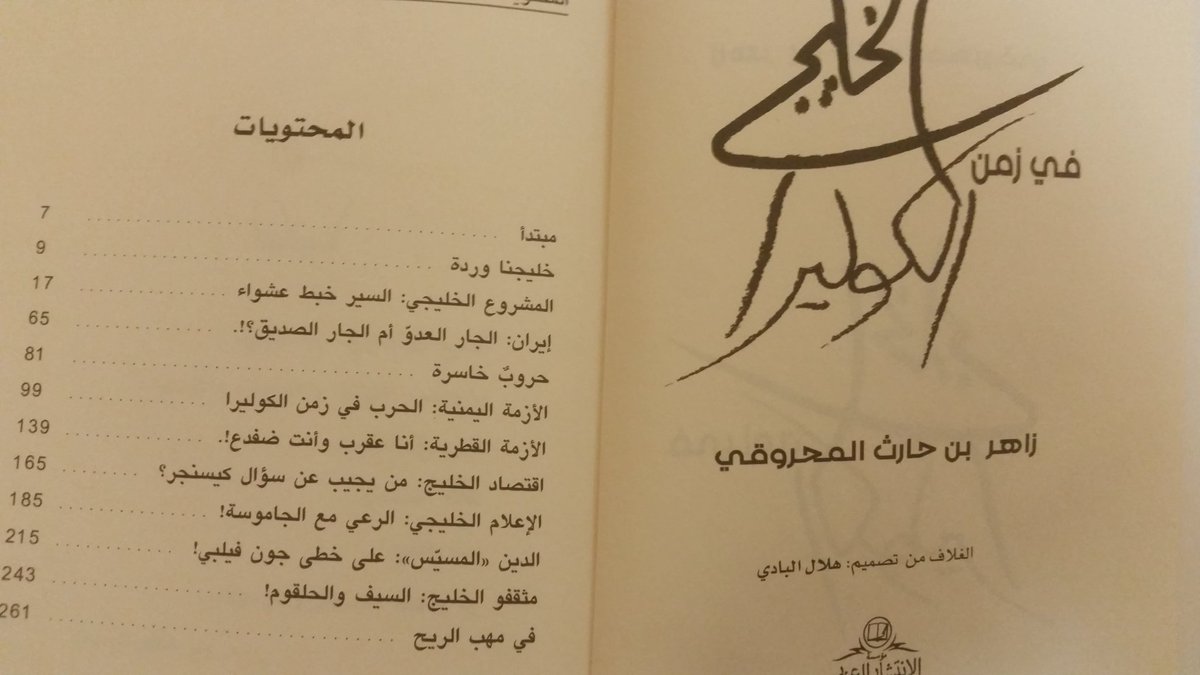 الخليج
في زمن
الكوليرا
زاهر بن حارث المحروقي
الغلاف من تصميم: هلال البادي
مؤسسة
الانتشار العربي
المحتويات
مبتدأ 7
خليجنا وردة 9
المشروع الخليجي: السير خبط عشواء 17
إيران: الجار العدوّ أم الجار الصديق؟!. 65
حروبٌ خاسرة 81
الأزمة اليمنية: الحرب في زمن الكوليرا 99
الأزمة القطرية: أنا عقرب وأنت ضفدع!. 139
اقتصاد الخليج: من يجيب عن سؤال كيسنجر؟ 165
الإعلام الخليجي: الرعي مع الجاموسة! 185
الدين «المسيّس»: على خطى جون فيلبي! 215
مثقفو الخليج: السيف والحلقوم! 243
في مهب الريح 261